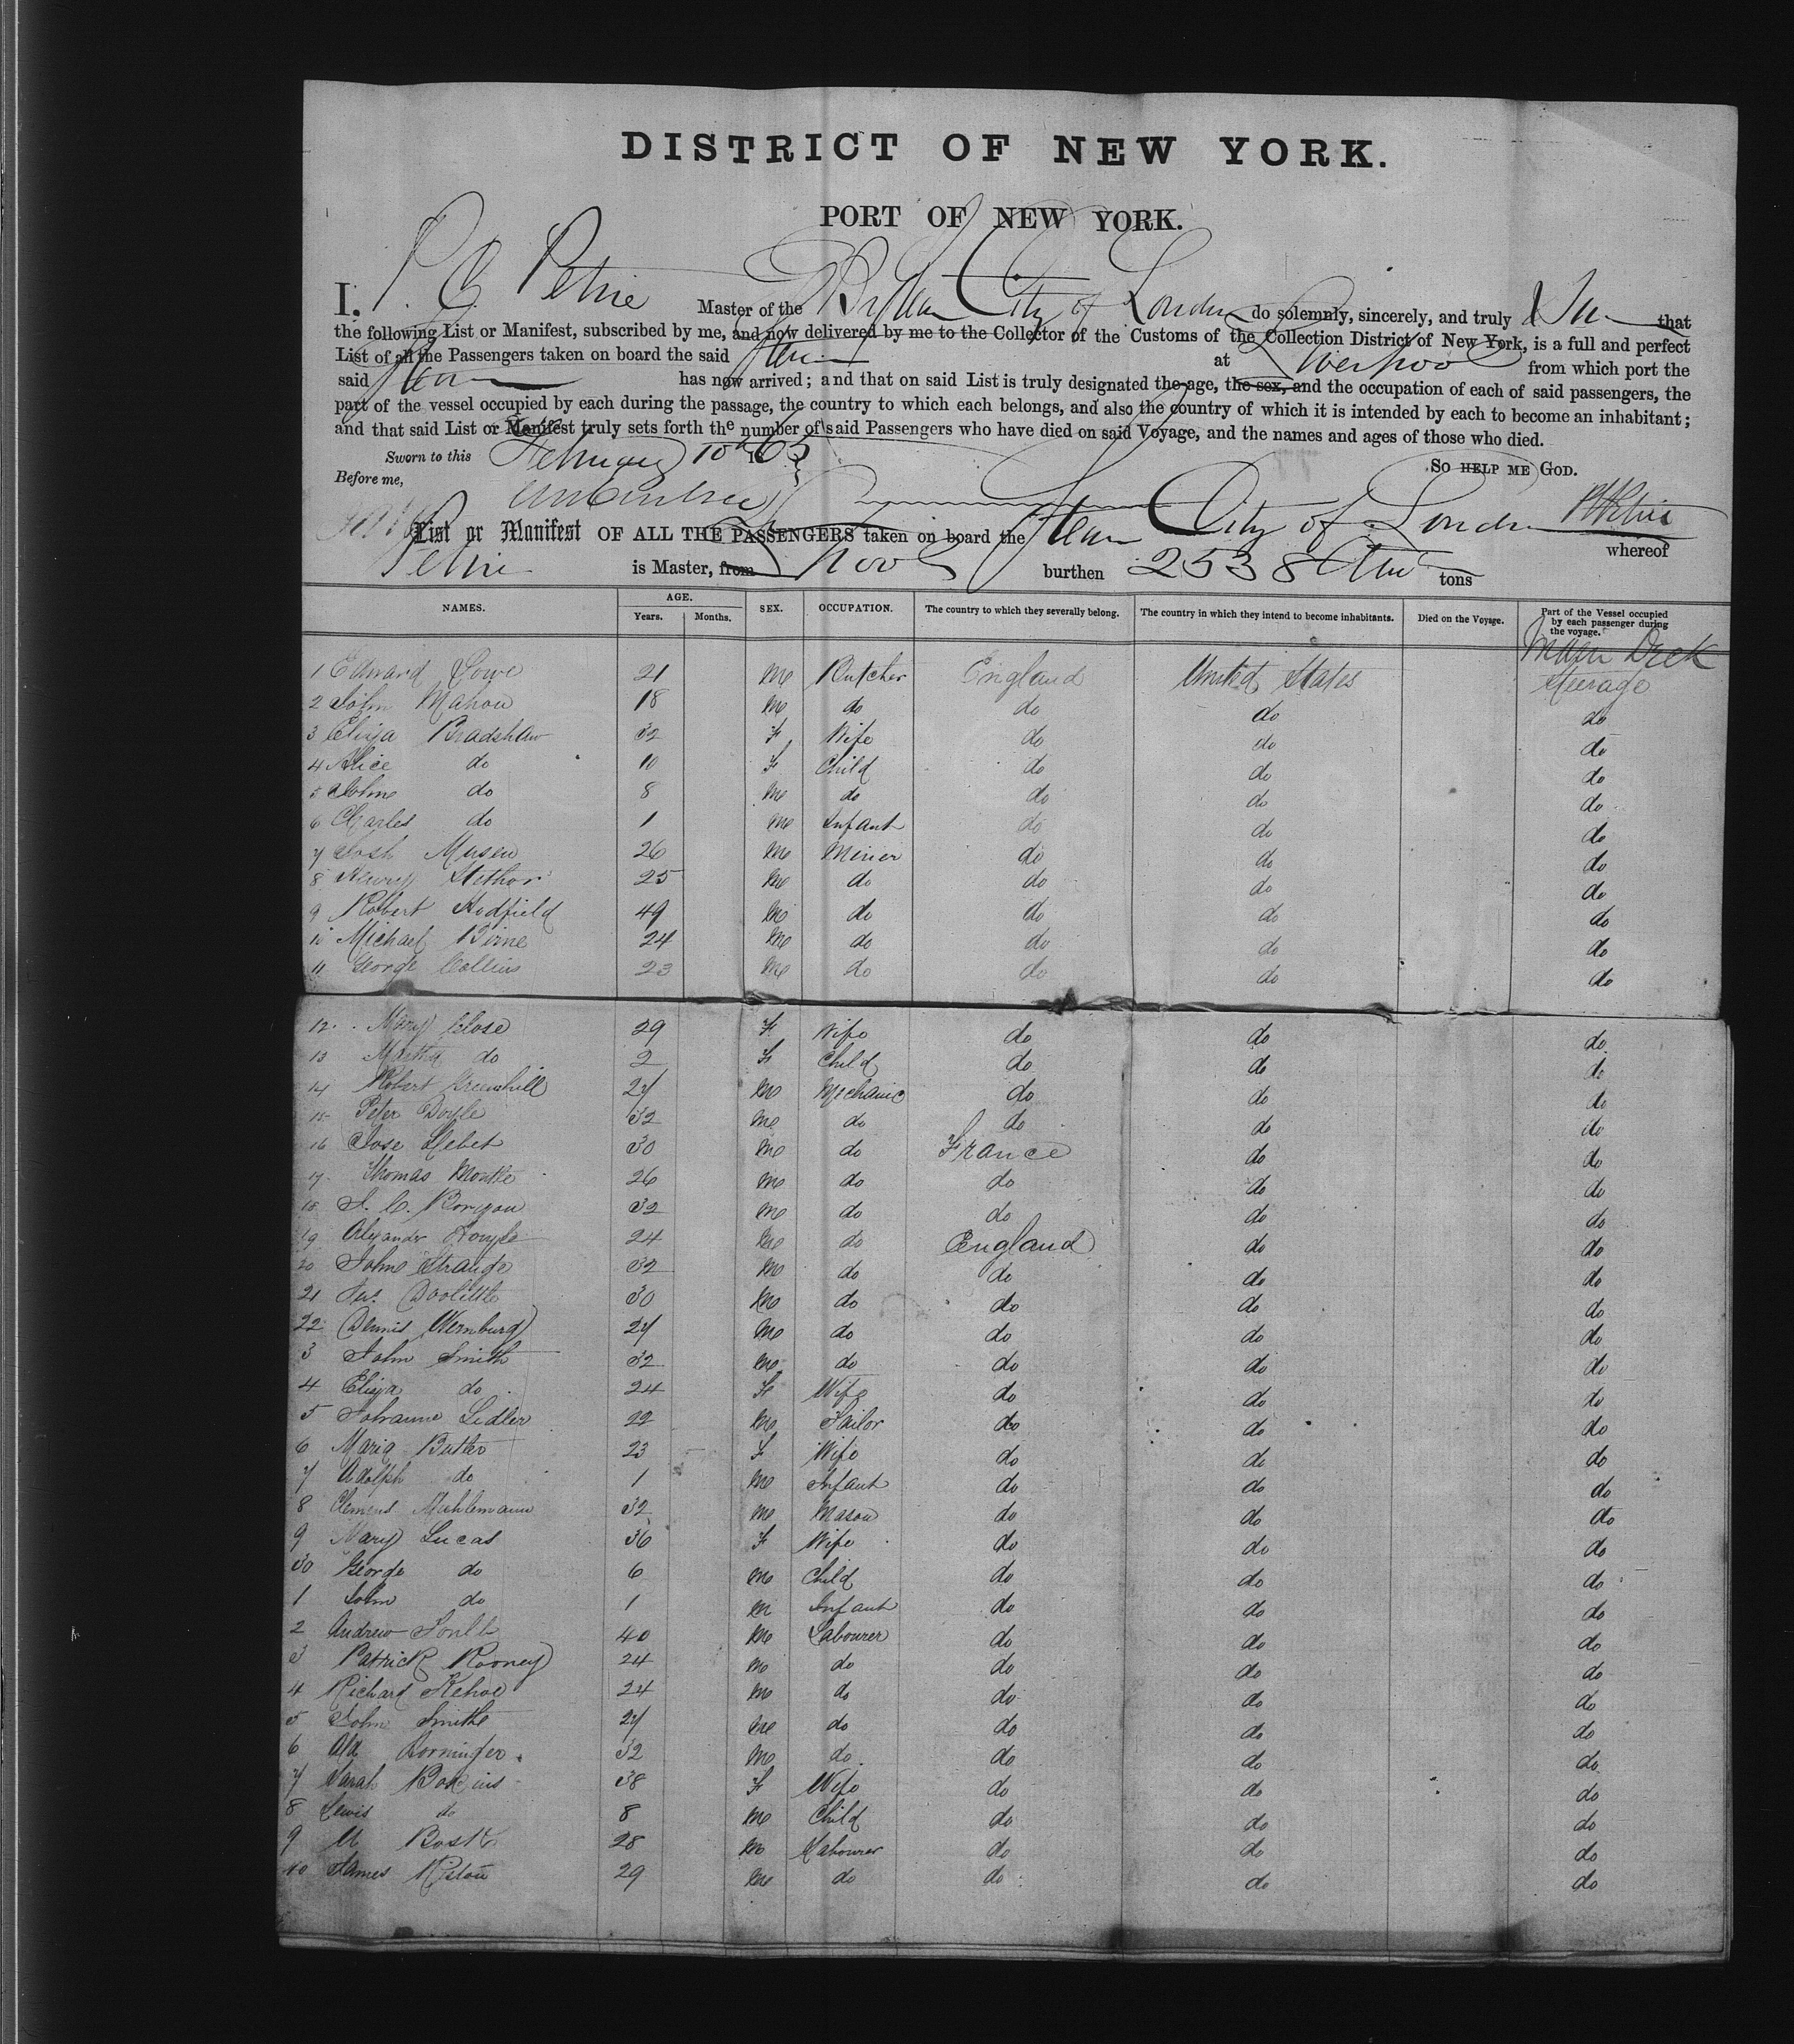 DISTRICT OF NEW YORK.
PORT OF NEW YORK.
I. P. C. Petrie Master of the Br Steam City of London do solemnly, sincerely, and truly that
the following List or Manifest, subscribed by me, and now delivered by me to the Collector of the Customs of the Collection District of New York, is a full and perfect
List of all the Passengers taken on board the said Steam at Liverpool from which port the
said Steam has now arrived; and that on said List is truly designated the age, the sex, and the occupation of each of said passengers, the
part of the vessel occupied by each during the passage, the country to which each belongs, and also the country of which it is intended by each to become an inhabitant;
and that said List or Manifest truly sets forth the number of said Passengers who have died on said Voyage, and the names and ages of those who died.
Sworn to this February 10th 1865 SO HELP ME GOD.
Before me,
List or Manifest OF ALL THE PASSENGERS taken on board the Steam City of London whereof
Petrie is Master, from Lpool burthen 2538 tons
NAMES. AGE. SEX. OCCUPATION. The country to which they severally belong. The country in which they intend to become inhabitants. Died on the Voyage. Part of the Vessel occupied by each passenger during the voyage.
Years. Months.
Under Deck
1 Edward Lowe 21 M Butcher England United States Steerage
2 John Mahon 18 M do do do do
3 Eliza Bradshaw 32 F Wife do do do
4 Alice do 10 F Child do do do
5 John do 8 M do do do do
6 Charles do 1 M Infant do do do
7 Josh Musen 26 M Miner do do do
8 Henry 25 M do do do do
9 Robert Hodfield 49 M do do do do
10 Michael Birne 24 M do do do do
11 George Collins 23 M do do do do
12 Mary Close 29 F Wife do do do
13 Martha do 2 F Child do do do
14 Robert Greenhill 27 M Mechanic do do do
15 Peter Doyle 32 M do do do do
16 Jose 30 M do France do do
17 Thomas 26 M do do do do
18 32 M do do do do
19 Alexander 24 M do England do do
20 John Strange 32 M do do do do
21 Jas. Doolittle 30 M do do do do
22 Dennis Wernburg 27 M do do do do
3 John Smith 32 M do do do do
4 Eliza do 24 F Wife do do do
5 Johanne Ledler 22 M Tailor do do do
6 Maria Butler 23 F Wife do do do
7 Adolph do 1 M Infant do do do
8 Clemens Muhlemann 32 M Mason do do do
9 Mary Lucas 36 F Wife do do do
30 George do 6 M Child do do do
1 John do 1 M Infant do do do
2 Andrew 40 M Labourer do do do
3 Patrick Rooney 24 M do do do do
4 Richard Kehoe 24 M do do do do
5 John Smith 27 M do do do do
6 32 M do do do do
7 Sarah 38 F Wife do do do
8 Lewis do 8 M Child do do do
9 28 M Labourer do do do
40 James 29 M do do do do